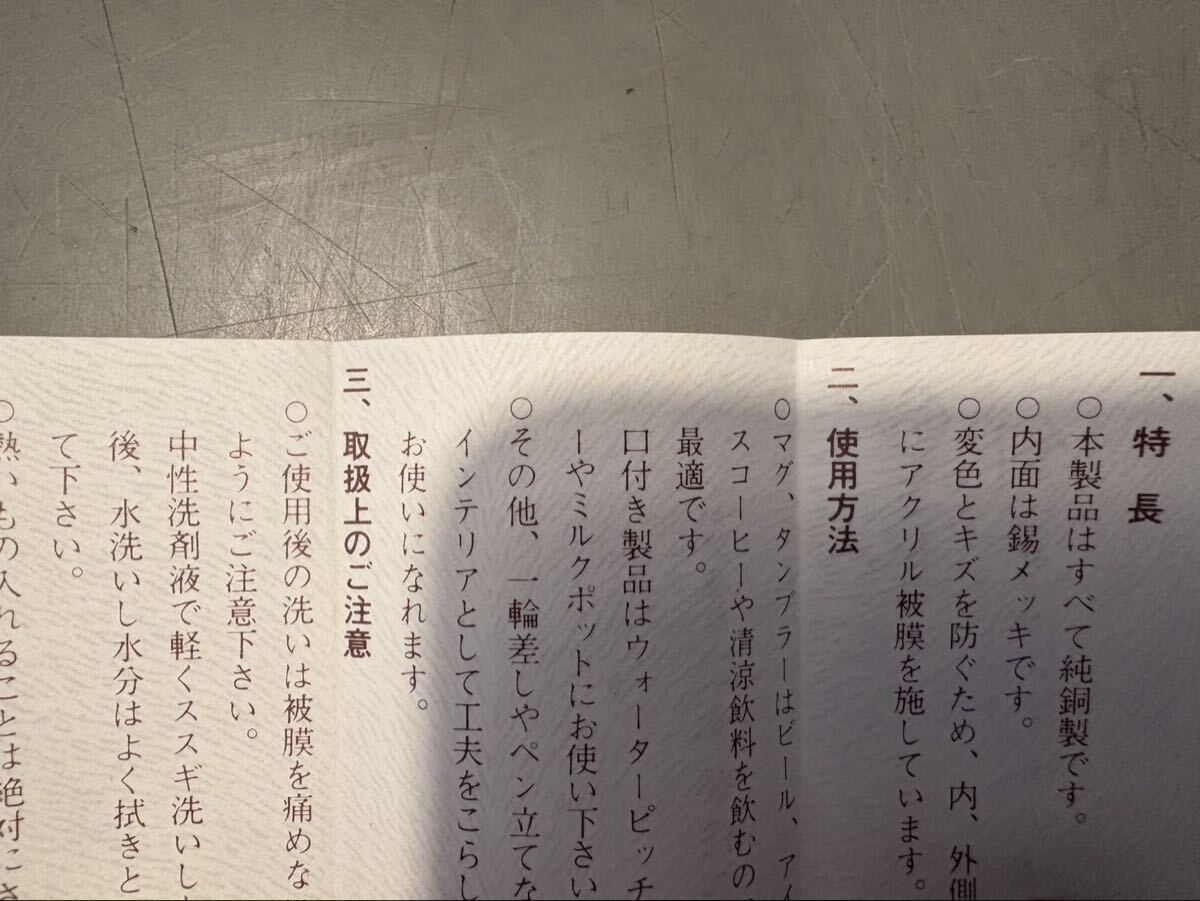 一、特長
○本製品はすべて純銅製です。
○内面は錫メッキです。
○変色とキズを防ぐため、内、外側
にアクリル被膜を施しています。
二、使用方法
○マグ、タンブラーはビール、アイ
スコーヒーや清涼飲料を飲むの
最適です。
口付き製品はウォーターピッチ
ーやミルクポットにお使い下さい
○その他、一輪差しやペン立てな
インテリアとして工夫をこらし
お使いになれます。
三、取扱上のご注意
○ご使用後の洗いは被膜を痛めな
ようにご注意下さい。
中性洗剤液で軽くススギ洗いし
後、水洗いし水分はよく拭きと
て下さい。
○熱いもの入れることは絶対に